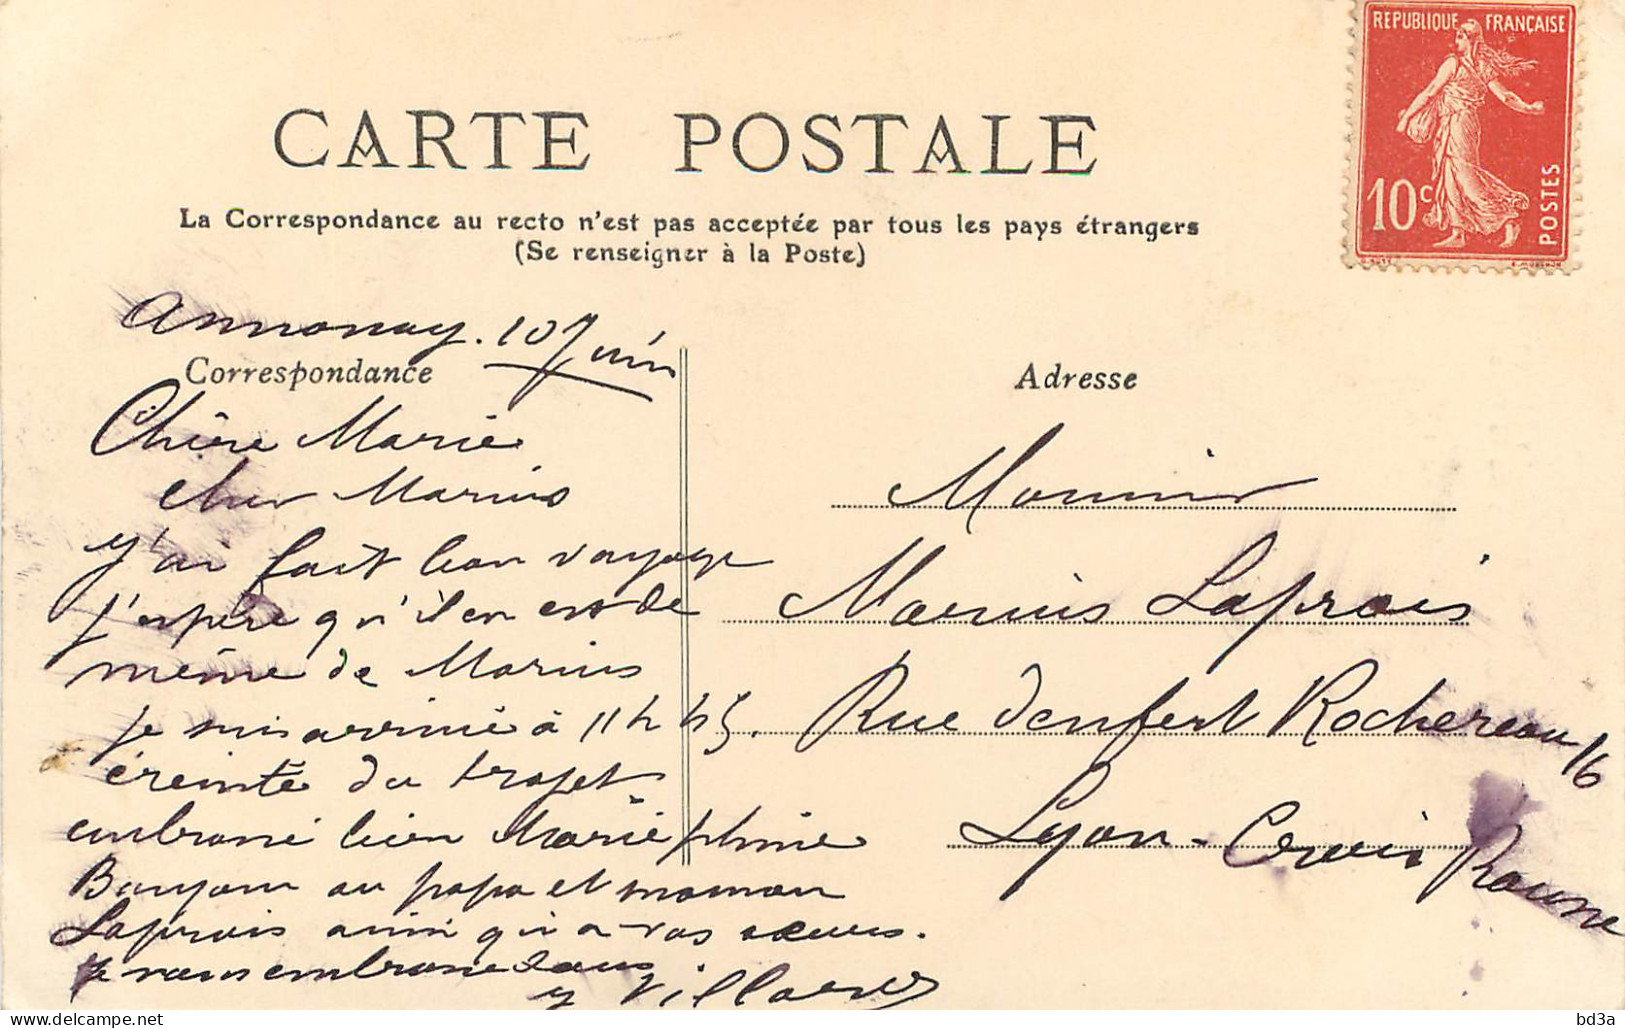 REPUBLIQUE FRANÇAISE
10c
POSTES
CARTE POSTALE
La Correspondance au recto n'est pas acceptée par tous les pays étrangers
(Se renseigner à la Poste)
Annonay. 10 Juin
Correspondance
Chère Marie
cher Marius
J'ai fait bon voyage
j'espère qu'il en est de
même de Marius
je suis arrivé à 11 h 45.
éreinté du trajet
embrassé bien Marie phine
Bonjour au papa et maman
Laprais ainsi qu'a vos sœurs.
Je vous embrasse tous
Villard
Adresse
Monsieur
Marius Laprais
Rue Denfert Rochereau 16
Lyon - Croix Rousse
bd3a